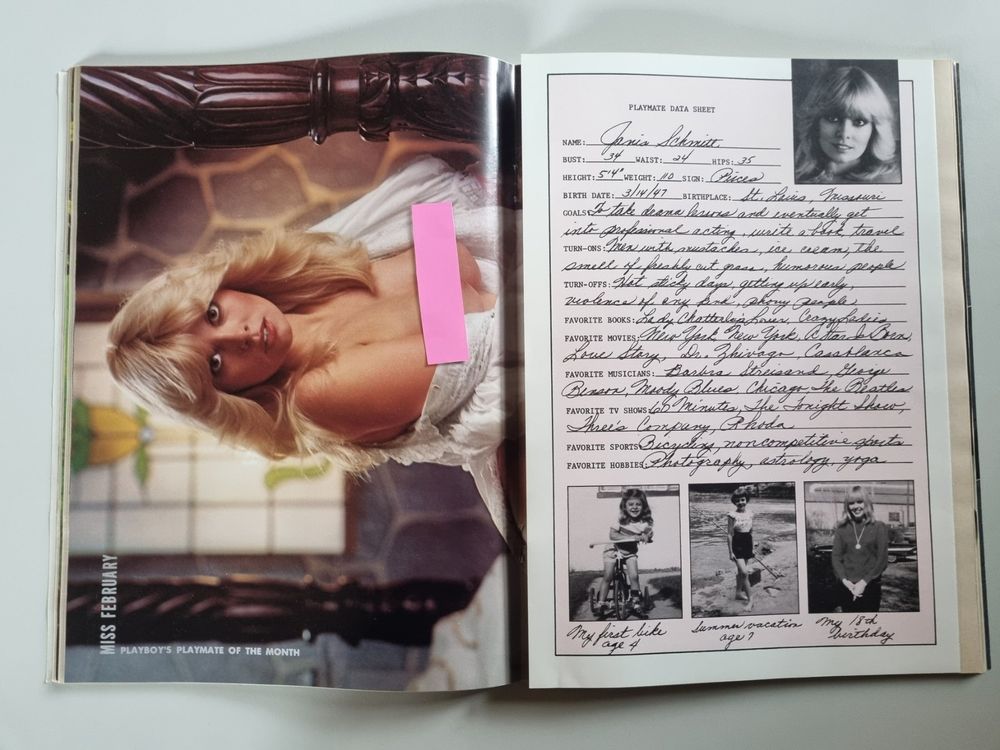 MISS FEBRUARY
PLAYBOY'S PLAYMATE OF THE MONTH
PLAYMATE DATA SHEET
NAME: Janis Schmitt
BUST: 34 WAIST: 24 HIPS: 35
HEIGHT: 5'4" WEIGHT: 110 SIGN: Pisces
BIRTH DATE: 3/14/47 BIRTHPLACE: St. Louis, Missouri
GOALS: To take drama lessons and eventually get
into professional acting, write a book, travel
TURN-ONS: Men with mustaches, ice cream, the
smell of freshly cut grass, humorous people
TURN-OFFS: Hot sticky days, getting up early,
violence of any kind, phony people
FAVORITE BOOKS: Lady Chatterley's Lover, Crazy Ladies
FAVORITE MOVIES: New York New York, A Star Is Born,
Love Story, Dr. Zhivago, Casablanca
FAVORITE MUSICIANS: Barbra Streisand, George
Benson, Moody Blues, Chicago, The Beatles
FAVORITE TV SHOWS: 60 Minutes, The Tonight Show,
Three's Company, Rhoda
FAVORITE SPORTS: Bicycling, noncompetitive sports
FAVORITE HOBBIES: Photography, astrology, yoga
My first bike
age 4
Summer vacation
age 7
My 18th
birthday